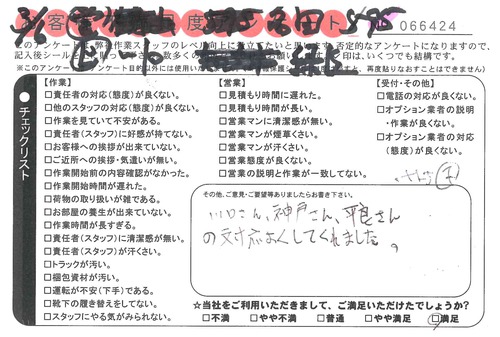 3/6
066424
このアンケートは、弊社作業スタッフのレベル向上に役立てたいと思います。否定的なアンケートになりますので、
【作業】
□責任者の対応(態度)が良くない。
□他のスタッフの対応(態度)が良くない。
□作業を見ていて不安がある。
□責任者(スタッフ)に好感が持てない。
□お客様への挨拶が出来ていない。
□ご近所への挨拶・気遣いが無い。
□作業開始前の内容確認がなかった。
□作業開始時間が遅れた。
□荷物の取り扱いが雑である。
□お部屋の養生が出来ていない。
□作業時間が長すぎる。
□責任者(スタッフ)に清潔感が無い。
□責任者(スタッフ)が汗くさい。
□トラックが汚い。
□梱包資材が汚い。
□運転が不安(下手)である。
□靴下の履き替えをしてない。
□スタッフにやる気がみられない。
【営業】
□見積もり時間に遅れた。
□見積もり時間が長い。
□営業マンに清潔感が無い。
□営業マンが煙草くさい。
□営業マンが汗くさい。
□営業態度が良くない。
□営業の説明と作業が一致してない。
【受付・その他】
□電話の対応が良くない。
□オプション業者の説明
・作業が良くない。
□オプション業者の対応
(態度)が良くない。
チェックリスト
その他、ご意見・ご要望等ありましたらお書き下さい。
川口さん、神戸さん、平良さん
の対応よくしてくれました。
☆当社をご利用いただきまして、ご満足いただけたでしょうか?
□不満 □やや不満 □普通 □やや満足 □満足